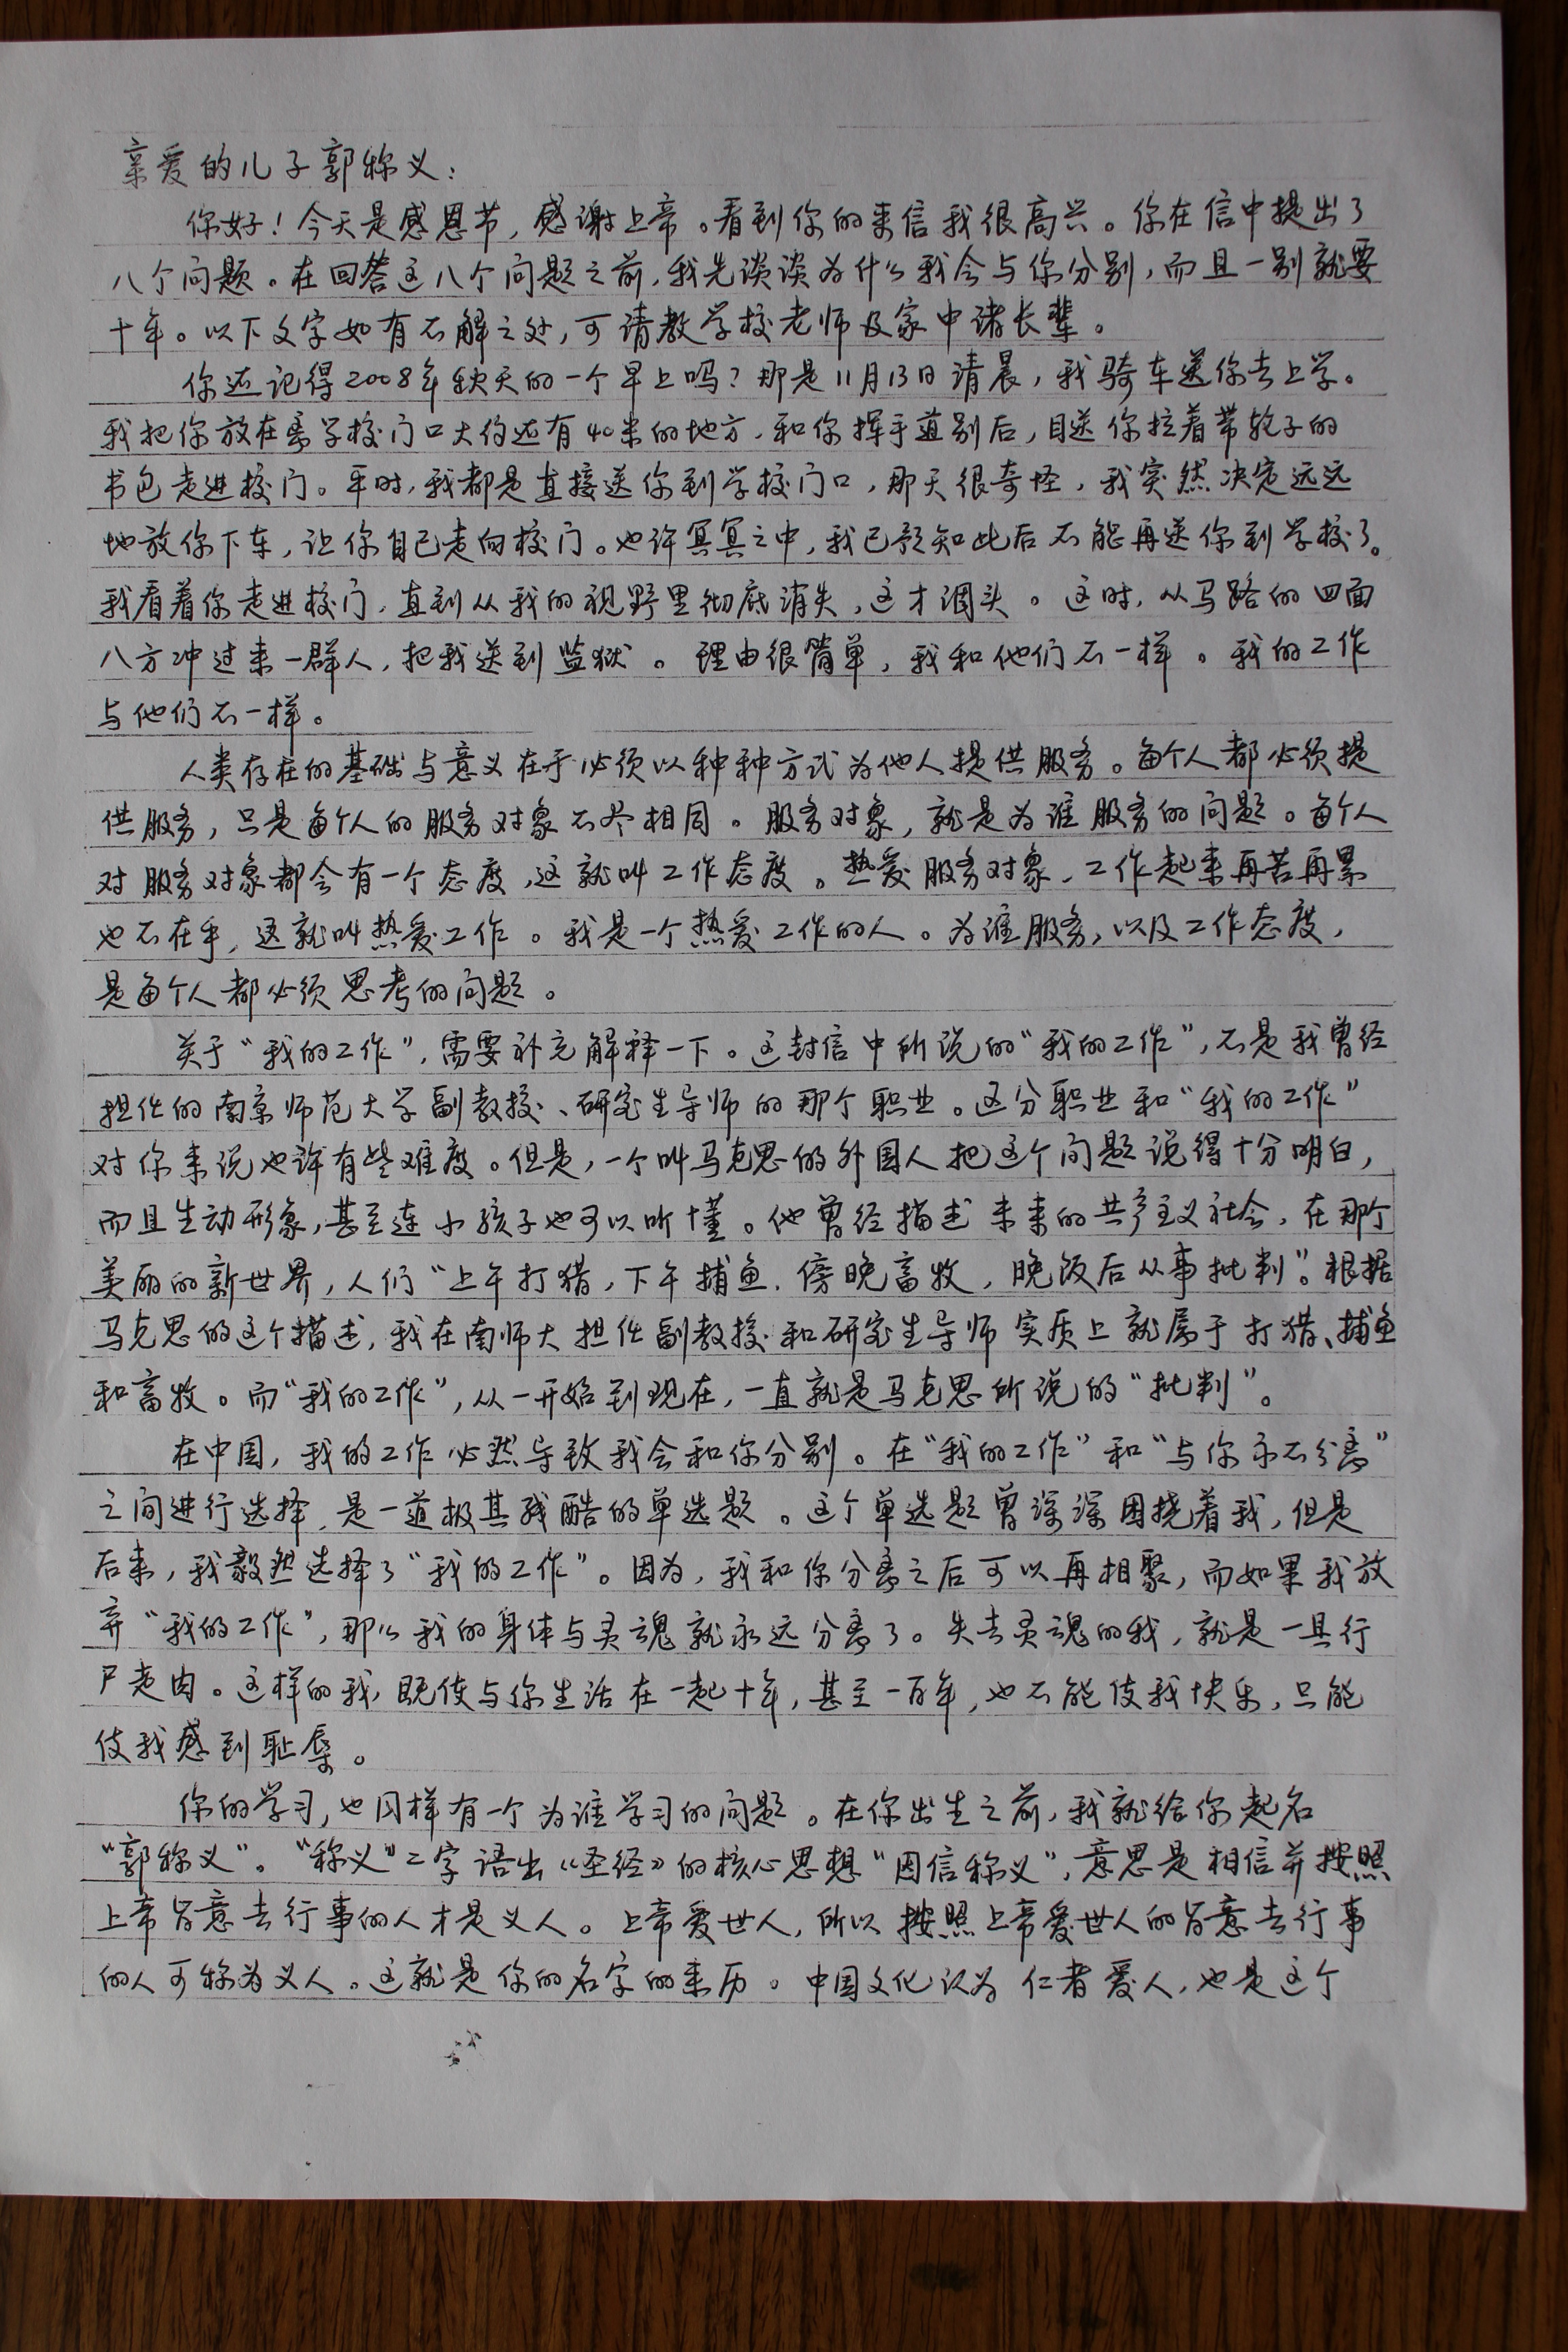 亲爱的儿子郭称义：
你好！今天是感恩节，感谢上帝。看到你的来信我很高兴。你在信中提出了
八个问题。在回答这八个问题之前，我先谈谈为什么我会与你分别，而且一别就要
十年。以下文字如有不解之处，可请教学校老师及家中诸长辈。
你还记得2008年秋天的一个早上吗？那是11月13日清晨，我骑车送你去上学。
我把你放在离学校门口大约还有40米的地方，和你挥手道别后，目送你拉着带轮子的
书包走进校门。平时，我都是直接送你到学校门口，那天很奇怪，我突然决定远远
地放你下车，让你自己走向校门。也许冥冥之中，我已预知此后不能再送你到学校了。
我看着你走进校门，直到从我的视野里彻底消失，这才调头。这时，从马路的四面
八方冲过来一群人，把我送到监狱。理由很简单，我和他们不一样。我的工作
与他们不一样。
人类存在的基础与意义在于必须以种种方式为他人提供服务。每个人都必须提
供服务，只是每个人的服务对象不尽相同。服务对象，就是为谁服务的问题。每个人
对服务对象都会有一个态度，这就叫工作态度。热爱服务对象，工作起来再苦再累
也不在乎，这就叫热爱工作。我是一个热爱工作的人。为谁服务，以及工作态度，
是每个人都必须思考的问题。
关于“我的工作”，需要补充解释一下。这封信中所说的“我的工作”，不是我曾经
担任的南京师范大学副教授、研究生导师的那个职业。区分职业和“我的工作”
对你来说也许有些难度。但是，一个叫马克思的外国人把这个问题说得十分明白，
而且生动形象，甚至连小孩子也可以听懂。他曾经描述未来的共产主义社会，在那个
美丽的新世界，人们“上午打猎，下午捕鱼，傍晚畜牧，晚饭后从事批判”。根据
马克思的这个描述，我在南师大担任副教授和研究生导师实质上就属于打猎、捕鱼
和畜牧。而“我的工作”，从一开始到现在，一直就是马克思所说的“批判”。
在中国，我的工作必然导致我会和你分别。在“我的工作”和“与你永不分离”
之间进行选择，是一道极其残酷的单选题。这个单选题曾深深困挠着我，但是
后来，我毅然选择了“我的工作”。因为，我和你分离之后可以再相聚，而如果我放
弃“我的工作”，那么我的身体与灵魂就永远分离了。失去灵魂的我，就是一具行
尸走肉。这样的我，既使与你生活在一起十年，甚至一百年，也不能使我快乐，只能
使我感到耻辱。
你的学习，也同样有一个为谁学习的问题。在你出生之前，我就给你起名
“郭称义”。“称义”二字语出《圣经》的核心思想“因信称义”，意思是相信并按照
上帝旨意去行事的人才是义人。上帝爱世人，所以按照上帝爱世人的旨意去行事
的人可称为义人。这就是你的名字的来历。中国文化认为仁者爱人，也是这个